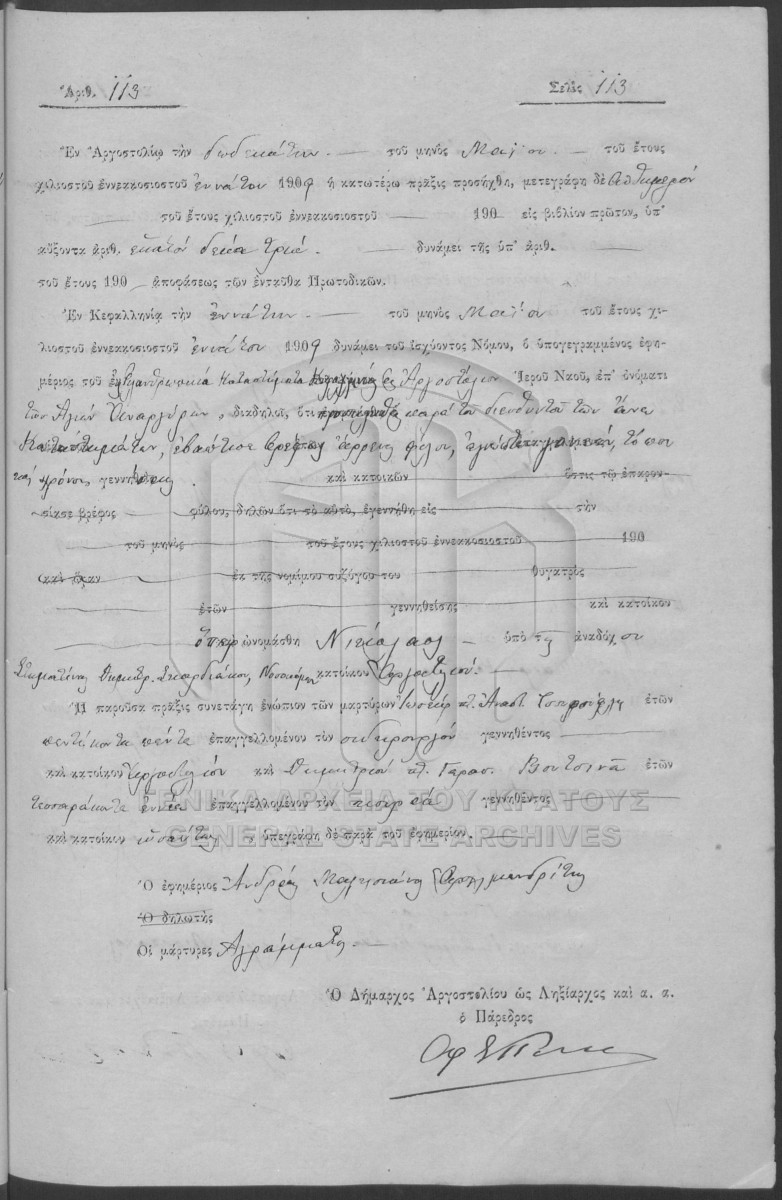 Ἀριθ. 113
Σελὶς 113
Ἐν Ἀργοστολίῳ τὴν δωδεκάτην τοῦ μηνὸς Μαΐου τοῦ ἔτους
χιλιοστοῦ ἐννεακοσιοστοῦ ἐννάτου 1909 ἡ κατωτέρω πρᾶξις προσήχθη, μετεγράφη δὲ αὐθημερόν
τοῦ ἔτους χιλιοστοῦ ἐννεακοσιοστοῦ 190 εἰς βιβλίον πρῶτον, ὑπ'
αὔξοντα ἀριθ. ἑκατὸν δεκα τρία. δυνάμει τῆς ὑπ' ἀριθ.
τοῦ ἔτους 190 ἀποφάσεως τῶν ἐνταῦθα Πρωτοδικῶν.
Ἐν Κεφαλληνίᾳ τὴν ἐννάτην τοῦ μηνὸς Μαΐου τοῦ ἔτους χι-
λιοστοῦ ἐννεακοσιοστοῦ ἐννάτου 1909 δυνάμει τοῦ ἰσχύοντος Νόμου, ὁ ὑπογεγραμμένος ἐφη-
μέριος τοῦ ἐν Φιλανθρωπικά Καταστήματα Ἀργοστολίου Ἱεροῦ Ναοῦ, ἐπ' ὀνόματι
τῶν Ἁγίων Ἀναργύρων δικδηλοῖ, ὅτι παρὰ τοῦ διευθυντοῦ τῶν ἄνω
Καταστημάτων, ἐβάπτισε βρέφος ἄρρεν φύλου, ἀγνώστων γονέων,
χρόνος γεννήσεως. καὶ κατοικῶν ὅστις τῷ ἐπαρου-
σίασε βρέφος φύλου, δηλῶν ὅτι τὸ αὐτὸ, ἐγεννήθη εἰς τὴν
τοῦ μηνὸς τοῦ ἔτους χιλιοστοῦ ἐννεακοσιοστοῦ 190
καὶ ὥραν ἐκ τῆς νομίμου συζύγου του θυγατρὸς
ἐτῶν γεννηθείσης καὶ κατοίκου
ὅπερ ὠνομάσθη Νικόλαος ὑπὸ τῆς ἀναδόχου
Σταματίνας Δημητρ. Σκαρδιάκου, Νοσοκόμου κατοίκου Ἀργοστολίου.
Ἡ παροῦσα πρᾶξις συνετάγη ἐνώπιον τῶν μαρτύρων Ἰωσὴφ Ἀναστ. ἐτῶν
πεντήκοντα πέντε ἐπαγγελλομένου τὸν σιδηρουργὸν γεννηθέντος
καὶ κατοίκου Ἀργοστολίου καὶ Δημητρίου Γερασ. Βουτσινᾶ ἐτῶν
τεσσαράκοντα ἐννέα ἐπαγγελλομένου τὸν κουρέα γεννηθέντος
καὶ κατοίκου ὡσαύτως ὑπεγράφη δὲ παρὰ τοῦ ἐφημερίου.
Ὁ ἐφημέριος Ἀνδρέας Ἀρχιμανδρίτης
Ὁ δηλωτὴς
Οἱ μάρτυρες Ἀγράμματοι
Ὁ Δήμαρχος Ἀργοστολίου ὡς Ληξίαρχος καὶ α. α.
ὁ Πάρεδρος
ΓΕΝΙΚΑ ΑΡΧΕΙΑ ΤΟΥ ΚΡΑΤΟΥΣ
GENERAL STATE ARCHIVES